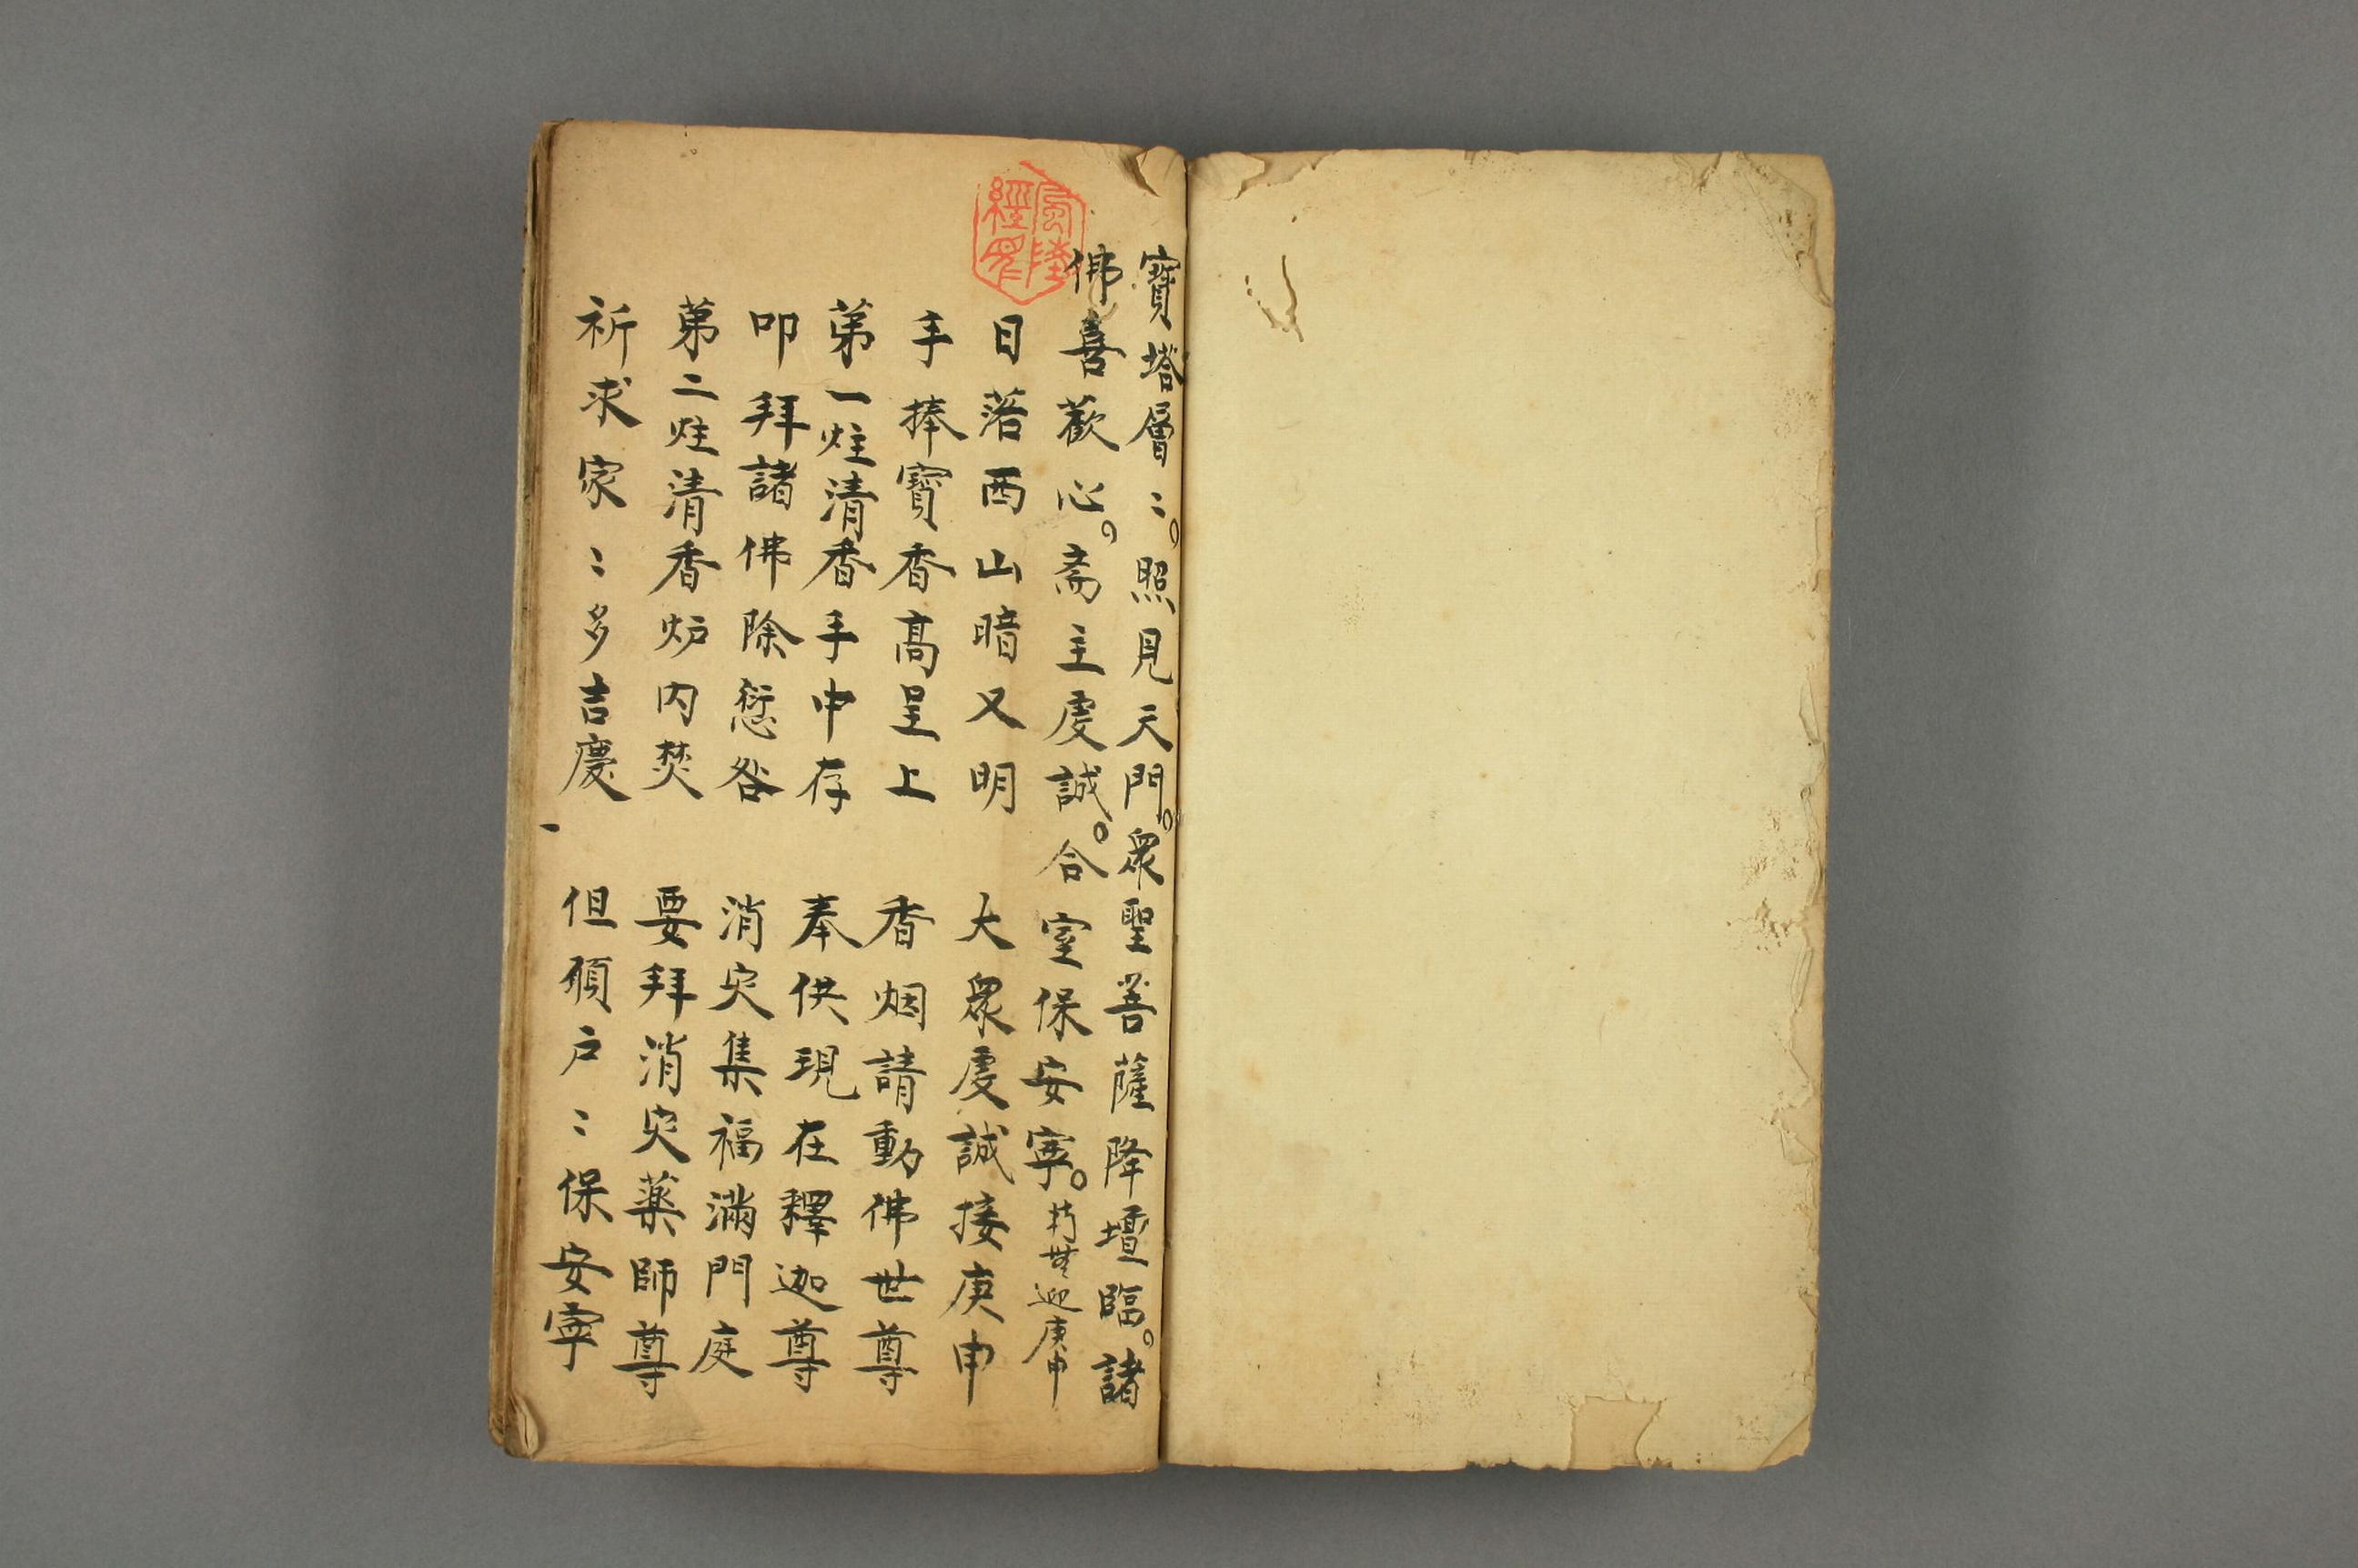 寶塔層〻。照見天門。眾聖菩薩降壇臨。諸
佛喜歡心。斋主虔誠。合室保安寕。
迎庚申
日落西山暗又明 大眾虔誠接庚申
手捧寶香高呈上 香烟請動佛世尊
苐一炷清香手中存 奉供現在釋迦尊
叩拜諸佛除愆咎 消灾集福滿門庭
苐二炷清香炉内焚 要拜消灾薬師尊
祈求家〻多吉慶 但願户〻保安寕